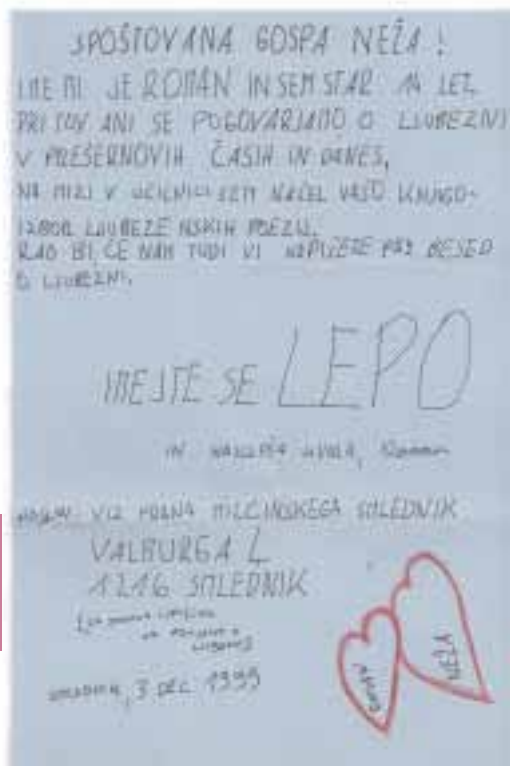 SPOŠTOVANA GOSPA NEŽA!
IME MI JE ROMAN IN SEM STAR 14 LET.
PRI ANI SE POGOVARJAMO O LJUBEZNI
V PREŠERNOVIH ČASIH IN DANES,
NA MIZI V UČILNICI SEM NAŠEL VAŠO KNJIGO-
IZBOR LJUBEZENSKIH POEZIJ.
RAD BI, ČE NAM TUDI VI NAPIŠETE PAR BESED
O LJUBEZNI.
IMEJTE SE LEPO
IN NAJLEPŠA HVALA, Roman
NASLOV: VIZ FRANA MILČINSKEGA SMLEDNIK
VALBURGA
1216 SMLEDNIK
SMLEDNIK, 3 DEC 1999
ROMAN
NEŽA